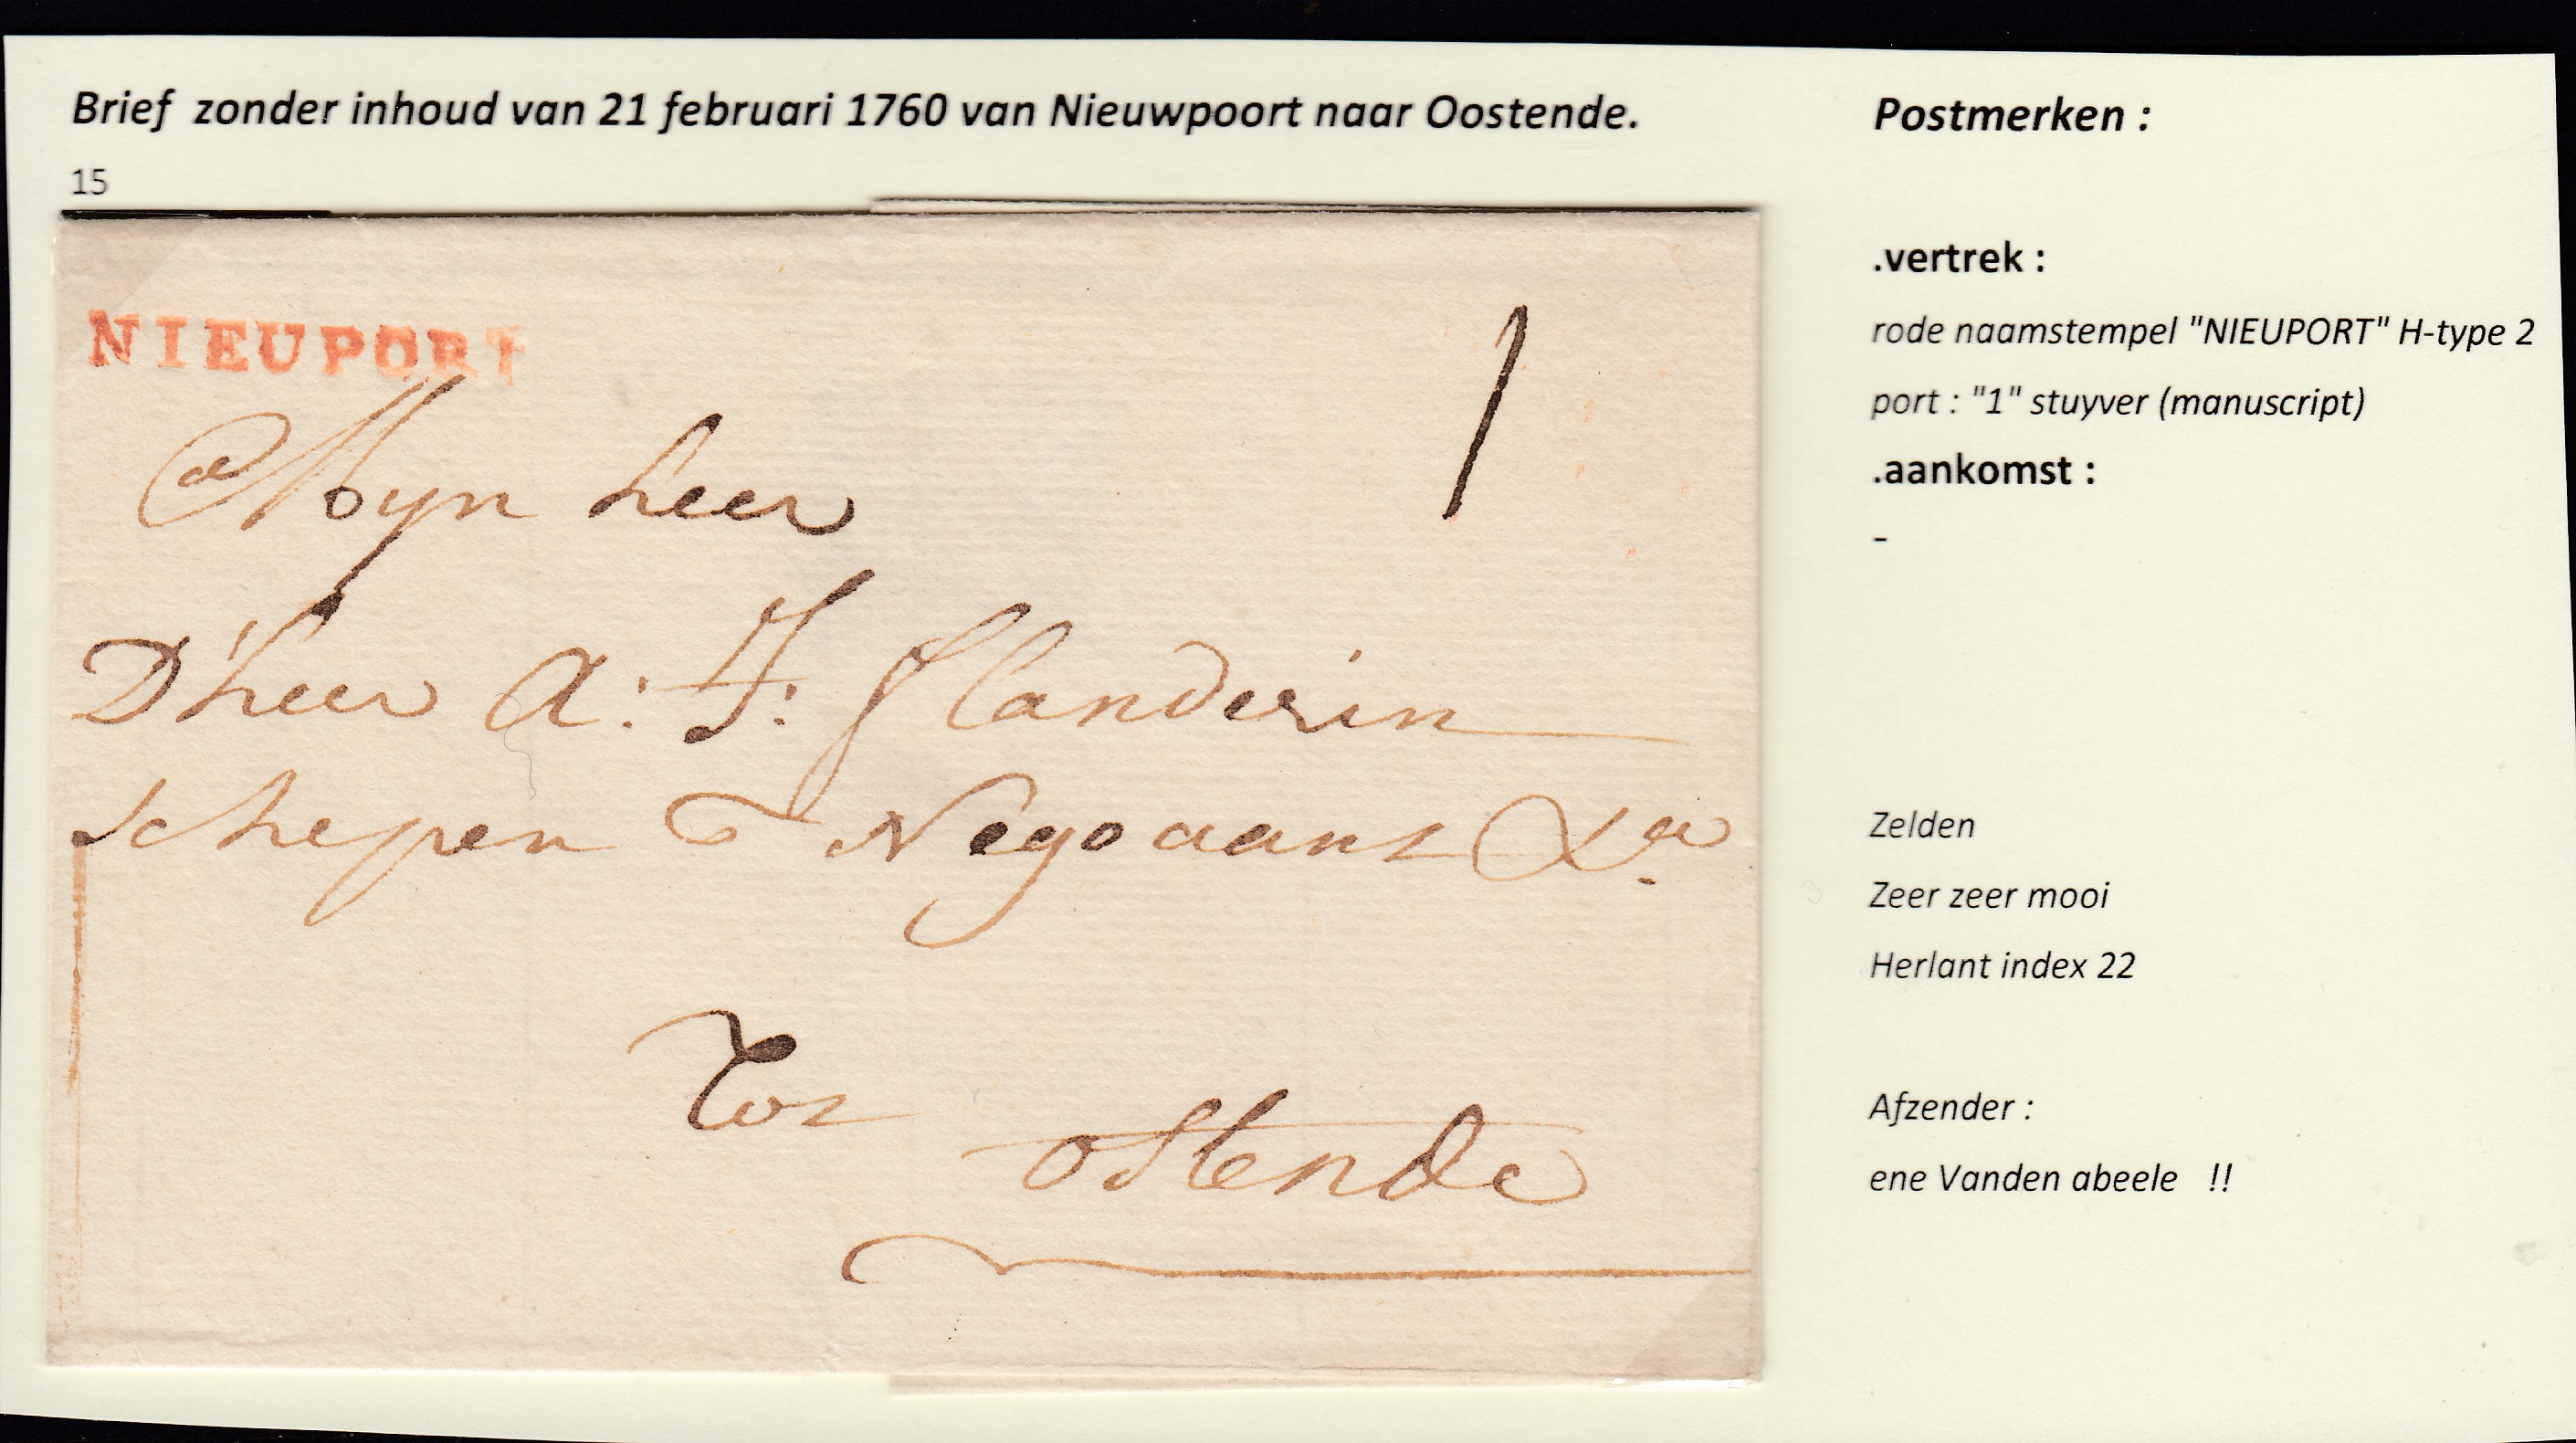 Brief zonder inhoud van 21 februari 1760 van Nieuwpoort naar Oostende.
15
NIEUPORT
1
Mijn heer
D'heer A: F: Flanderin
schepen & Negoaant &a
Tot
ostende
Postmerken :
.vertrek :
rode naamstempel "NIEUPORT" H-type 2
port : "1" stuyver (manuscript)
.aankomst :
-
Zelden
Zeer zeer mooi
Herlant index 22
Afzender :
ene Vanden abeele !!